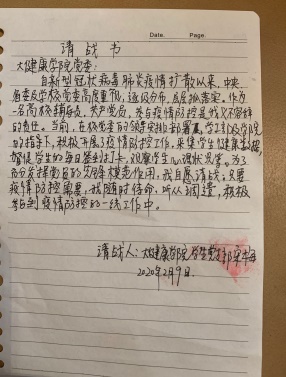 Date.    Page.
请 战 书
大健康学院党委:
自新型冠状病毒肺炎疫情扩散以来,中央
省委及学校党委高度重视,逐级分布,层层抓落实。作为
一名高校辅导员,共产党员,参与疫情防控是我义不容辞
的责任。当前,在校党委的领导安排部署,学工部及学院
的指导下,积极开展了防控工作,采集学生健康数据,
督促学生的每日签到打卡,观察学生心理状况等。为了
充分发挥党员的先锋模范作用,我自愿请战:只要
疫情防控需要,我随时待命,听从调遣,积极
参与到疫情防控的一线工作中。
请战人:大健康学院学生党支部
2020年2月9日